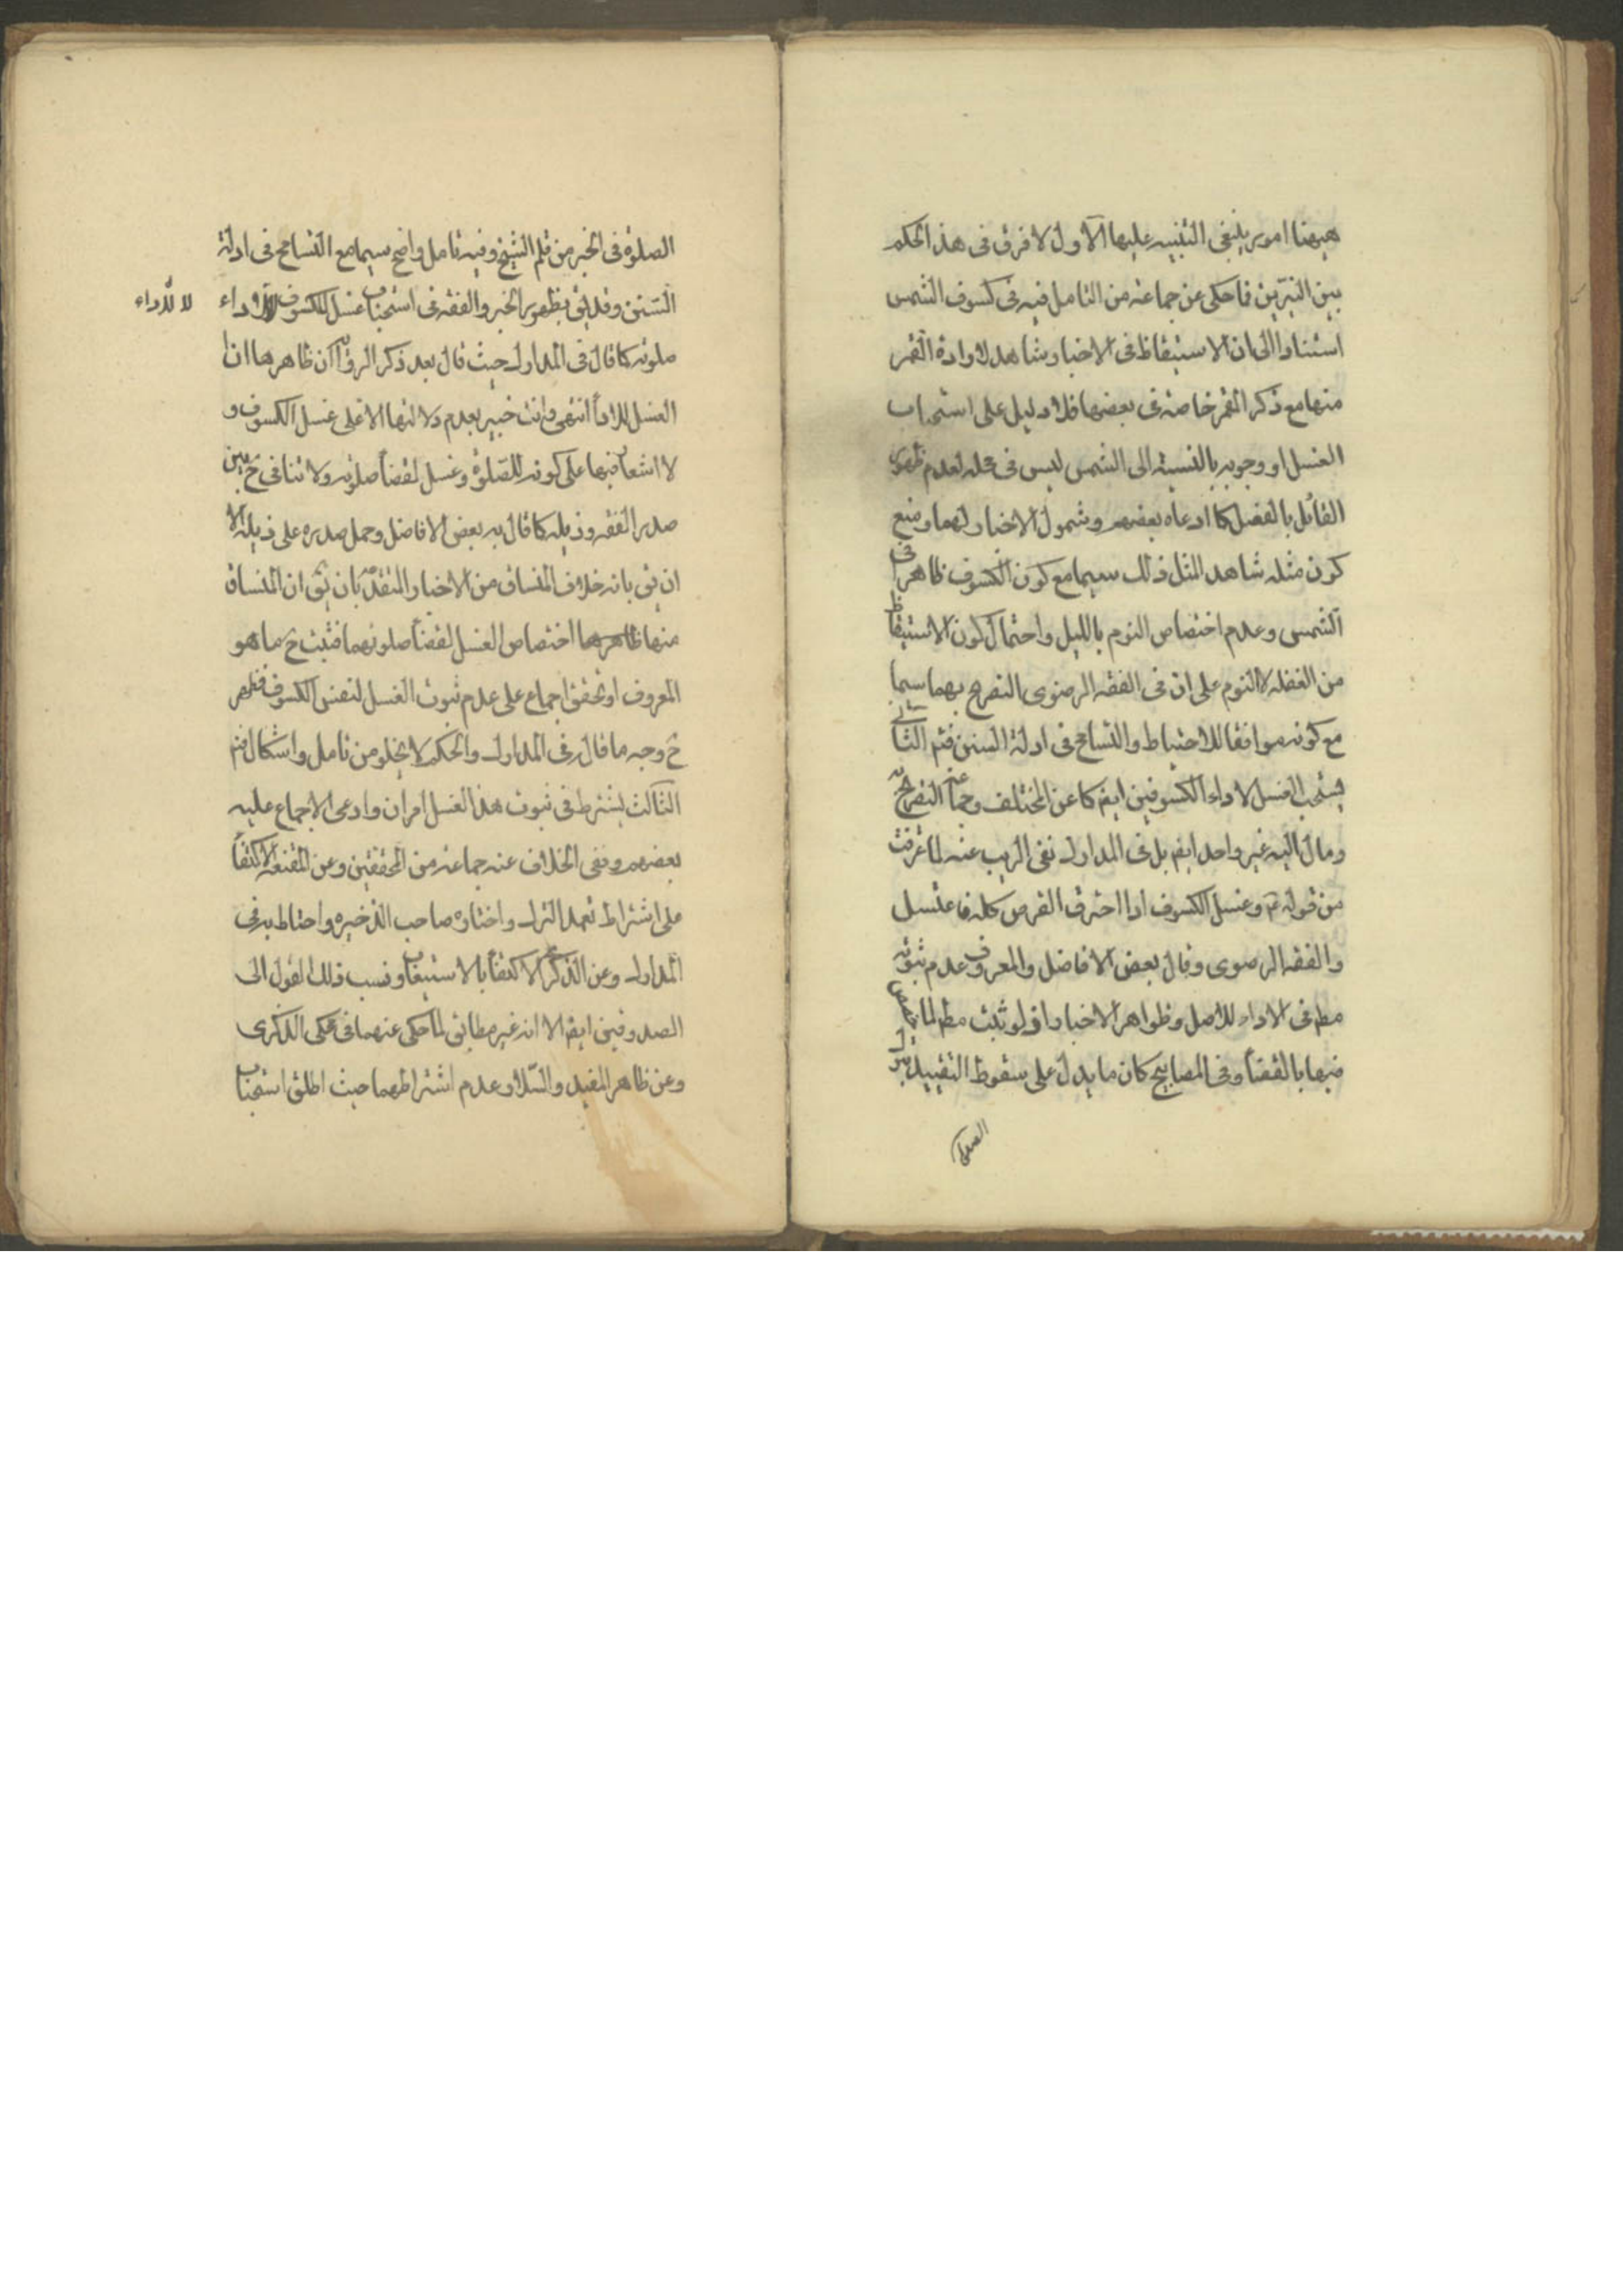 هيهنا امور ينبغى التنبيه عليها الاول لا فرق فى هذ الحكم
بين النيّرين فما حكى عن جماعة من التامل فيه فى كسوف الشمس
استنادا الى ان الاستيقاظ فى الاخبار شاهد لارادة القمر
منها مع ذكر القمر خاصة فى بعضها فلا دليل على استحباب
الغسل او وجوبه بالنسبة الى الشمس ليس فى محله لعدم ظهور
القائل بالفصل كما ادعاه بعضهم وشمول الاخبار لهما ومنع
كون مثله شاهد المثل ذلك سيما مع كون الكسوف ظاهرا فى
الشمس وعدم اختصاص النوم بالليل واحتمال كون الاستيقاظ
من الغفلة لا النوم على ان فى الفقه الرضوى التصريح بهما سيما
مع كونه موافقا للاحتياط والتسامح فى ادلة السنن فتم الثانى
يستحب الغسل لاداء الكسوفين ايضم كما عن المختلف وجماعة التصريح به
ومال اليه غير واحد ايضم بل فى المدارك نفى الريب عنه لما عرفت
من قوله ع وغسل الكسوف اذا احترق القرص كله فاغتسل
والفقه الرضوى وقال بعض الافاضل والمعروف عدم ثبوته
مطم فى الاداء للاصل وظواهر الاخبار اذ لو ثبت مطم لما خص
فيها بالقضآ وفى المصابيح كان ما يدل على سقوط التقييد بترك
الصلوة
الصلوة فى الخبر من قلم الشيخ وفيه تامل واضح سيما مع التسامح فى ادلة
السنن وقد يق بظهور الخبر والفقه فى استحباب غسل الكسوف للاداء
لا للاداء
صلوته كما قال فى المدارك حيث قال بعد ذكر الرواية ان ظاهرها ان
الغسل للادآ انتهى وانت خبير بعدم دلالتها الا على غسل الكسوف و
لا اشعار فيها على كونه للصلوة وغسل لقضآ صلوته ولا تنافى ح بين
صدر الفقه وذيله كما قال به بعض الافاضل وحمل صدره على ذيله الا
ان يق بانه خلاف المنساق من الاخبار المتقدمة بان يق ان المنساق
منها ظاهرها اختصاص الغسل لقضآ صلوتهما فثبت ح ما هو
المعروف او تحقق اجماع على عدم ثبوت الغسل لنفس الكسوف فظهر
ح وجه ما قال فى المدارك والحكم لا يخلو من تامل واشكال فتم
الثالث يشترط فى ثبوت هذ الغسل امران وادعى الاجماع عليه
بعضهم ونفى الخلاف عنه جماعة من المحققين وعن المقنعة الاكتفآ
على اشتراط تعمد الترك واختاره صاحب الذخيره واحتاط به فى
المدارك وعن الذكرى الاكتفآ بالاستيعاب ونسب ذلك القول الى
الصدوقين ايضم الا انه غير مطابق لما حكى عنهما فى محكى الذكرى
وعن ظاهر المفيد والسلار عدم اشتراطهما حيث اطلق استحباب